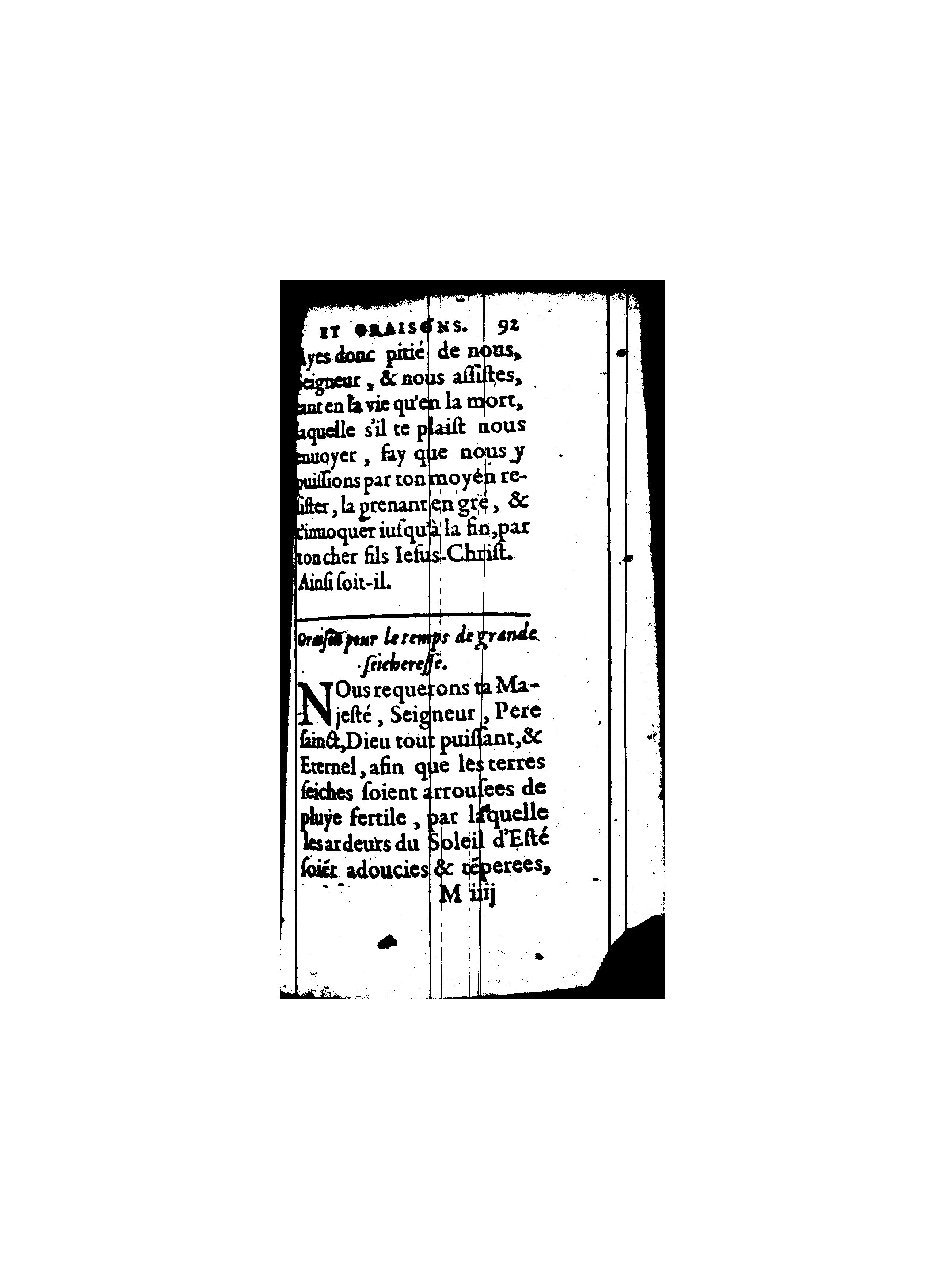 ET ORAISONS. 92
Ayes donc pitié de nous,
Seigneur, & nous aſſiſtes,
tant en la vie qu'en la mort,
laquelle s'il te plaiſt nous
enuoyer, fay que nous y
puiſſions par ton moyen re-
ſiſter, la prenant en gré, &
t'inuoquer iuſqu'à la fin, par
ton cher fils Ieſus-Chriſt.
Ainſi ſoit-il.
Oraiſon pour le temps de grande
ſeichereſſe.
NOus requerons ta Ma-
jeſté, Seigneur, Pere
ſainct, Dieu tout puiſſant, &
Eternel, afin que les terres
ſeiches ſoient arrouſees de
pluye fertile, par laquelle
les ardeurs du Soleil d'Eſté
ſoiẽt adoucies & tẽperees,
M iiij